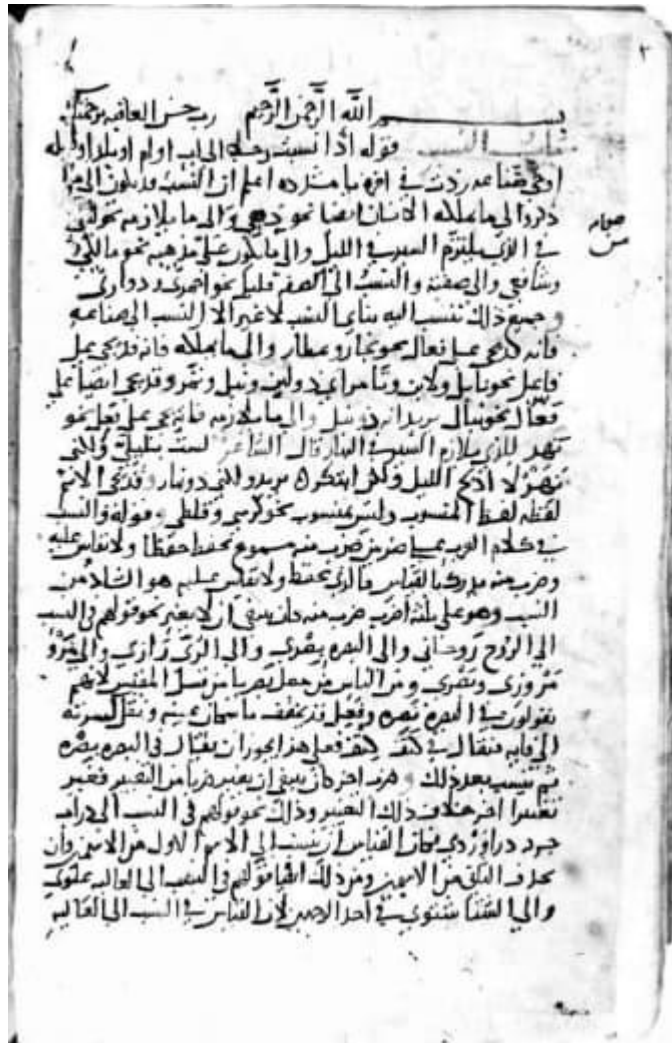 بسم الله الرحمن الرحيم رب حسن العاقبه برحمتك
باب النسب قوله اذا نسبت رجلا الى اب او ام او بلد او قبيله
او الى صناعه زدت في اخره يا مشدده اعلم ان النسب قد يكون الى ما
ذكر والى ما يملكه الانسان ايضا نحو والى ما يلازمه نحو
في الذي يلتزم السير في الليل والى ما يكون على مذهبه نحو مالكي
وشافعي والى صفته والنسب الى الصفه قليل نحو احمري ودواري
وجميع ذلك تنسب اليه بياي النسب لا غير الا النسب الى صناعه
فانه قد يجي على فعال نحو نجار وعطار والى ما يملكه فانه قد يجي على
فاعل نحو نابل ولابن وتامر اي ذو لبن ونبل وتمر وقد يجي ايضا على
فعال نحو نبال يريد انه ذو نبل والى ما يلازمه فانه يجي على فعل نحو
نهر للذي يلازم السير في النهار قال الشاعر لست بليلي ولكني
نهر لا ادلج الليل ولكن ابتكر يريد ولكني ذو نهار وقد يجي الاسم
لفظه لفظ المنسوب وليس بمنسوب نحو كرسي وقوله والنسب
في كلام العرب على ضربين ضرب منه مسموع يحفظ حفظا ولا يقاس عليه
وضرب منه يدرك بالقياس فالذي يحفظ ولا يقاس عليه هو الشاذ من
النسب وهو على ثلثه اضرب ضرب منه كان ينبغي ان لا يغير نحو قولهم في النسب
الى الروح روحاني والى البصره بصري والى الري رازي والى مرو
مروزي ومن الناس من جعل بصريا من قبيل المقيس لانهم
يقولون في البصره بصره وفعل قد يخفف ما كان عينه وتنقل كسرته
الى فايه فيقال في كتف كتف فعلى هذا يجوز ان يقال في البصره بصره
ثم ينسب بعد ذلك وضرب اخر كان ينبغي ان يغير ضربا من التغيير فغير
تغييرا اخر خلاف ذلك التغيير وذلك نحو قولهم في النسب الى دراب
جرد دراوردي فكان القياس ان ينسب الى الاسم الاول من الاسمين وان
يحذف الثاني من الاسمين ومن ذلك ايضا قولهم في النسب الى العاليه علوي
والى الشتا شتوي في احد الوجهين لان القياس في النسب الى العاليه